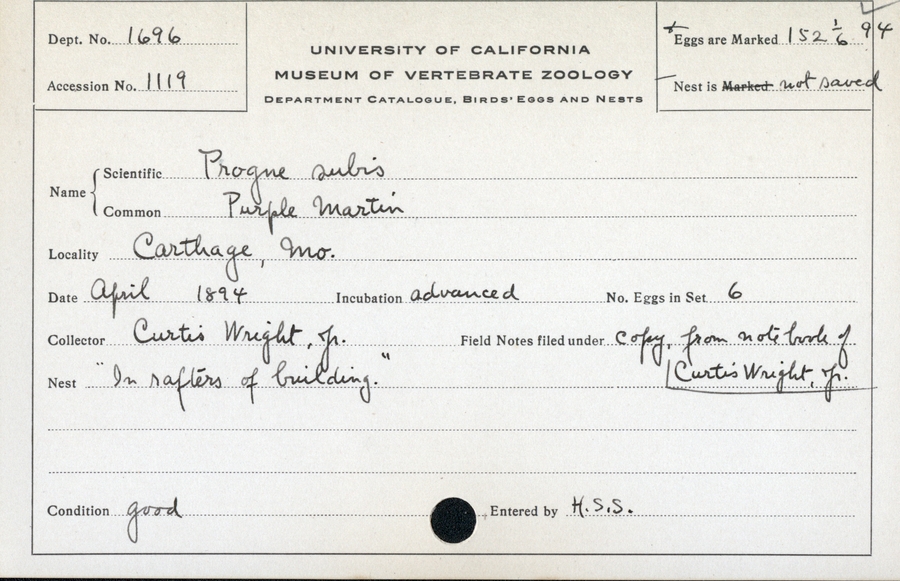 Dept. No. 1696
Accession No. 1119
UNIVERSITY OF CALIFORNIA
MUSEUM OF VERTEBRATE ZOOLOGY
DEPARTMENT CATALOGUE, BIRDS' EGGS AND NESTS
Eggs are Marked 152 1/6 94
Nest is Marked not saved
Name
Scientific Progne subis
Common Purple Martin
Locality Carthage, Mo.
Date April 1894 Incubation advanced No. Eggs in Set 6
Collector Curtis Wright, Jr. Field Notes filed under copy, from note book of
Curtis Wright, Jr.
Nest "In rafters of building."
Condition good Entered by H.S.S.